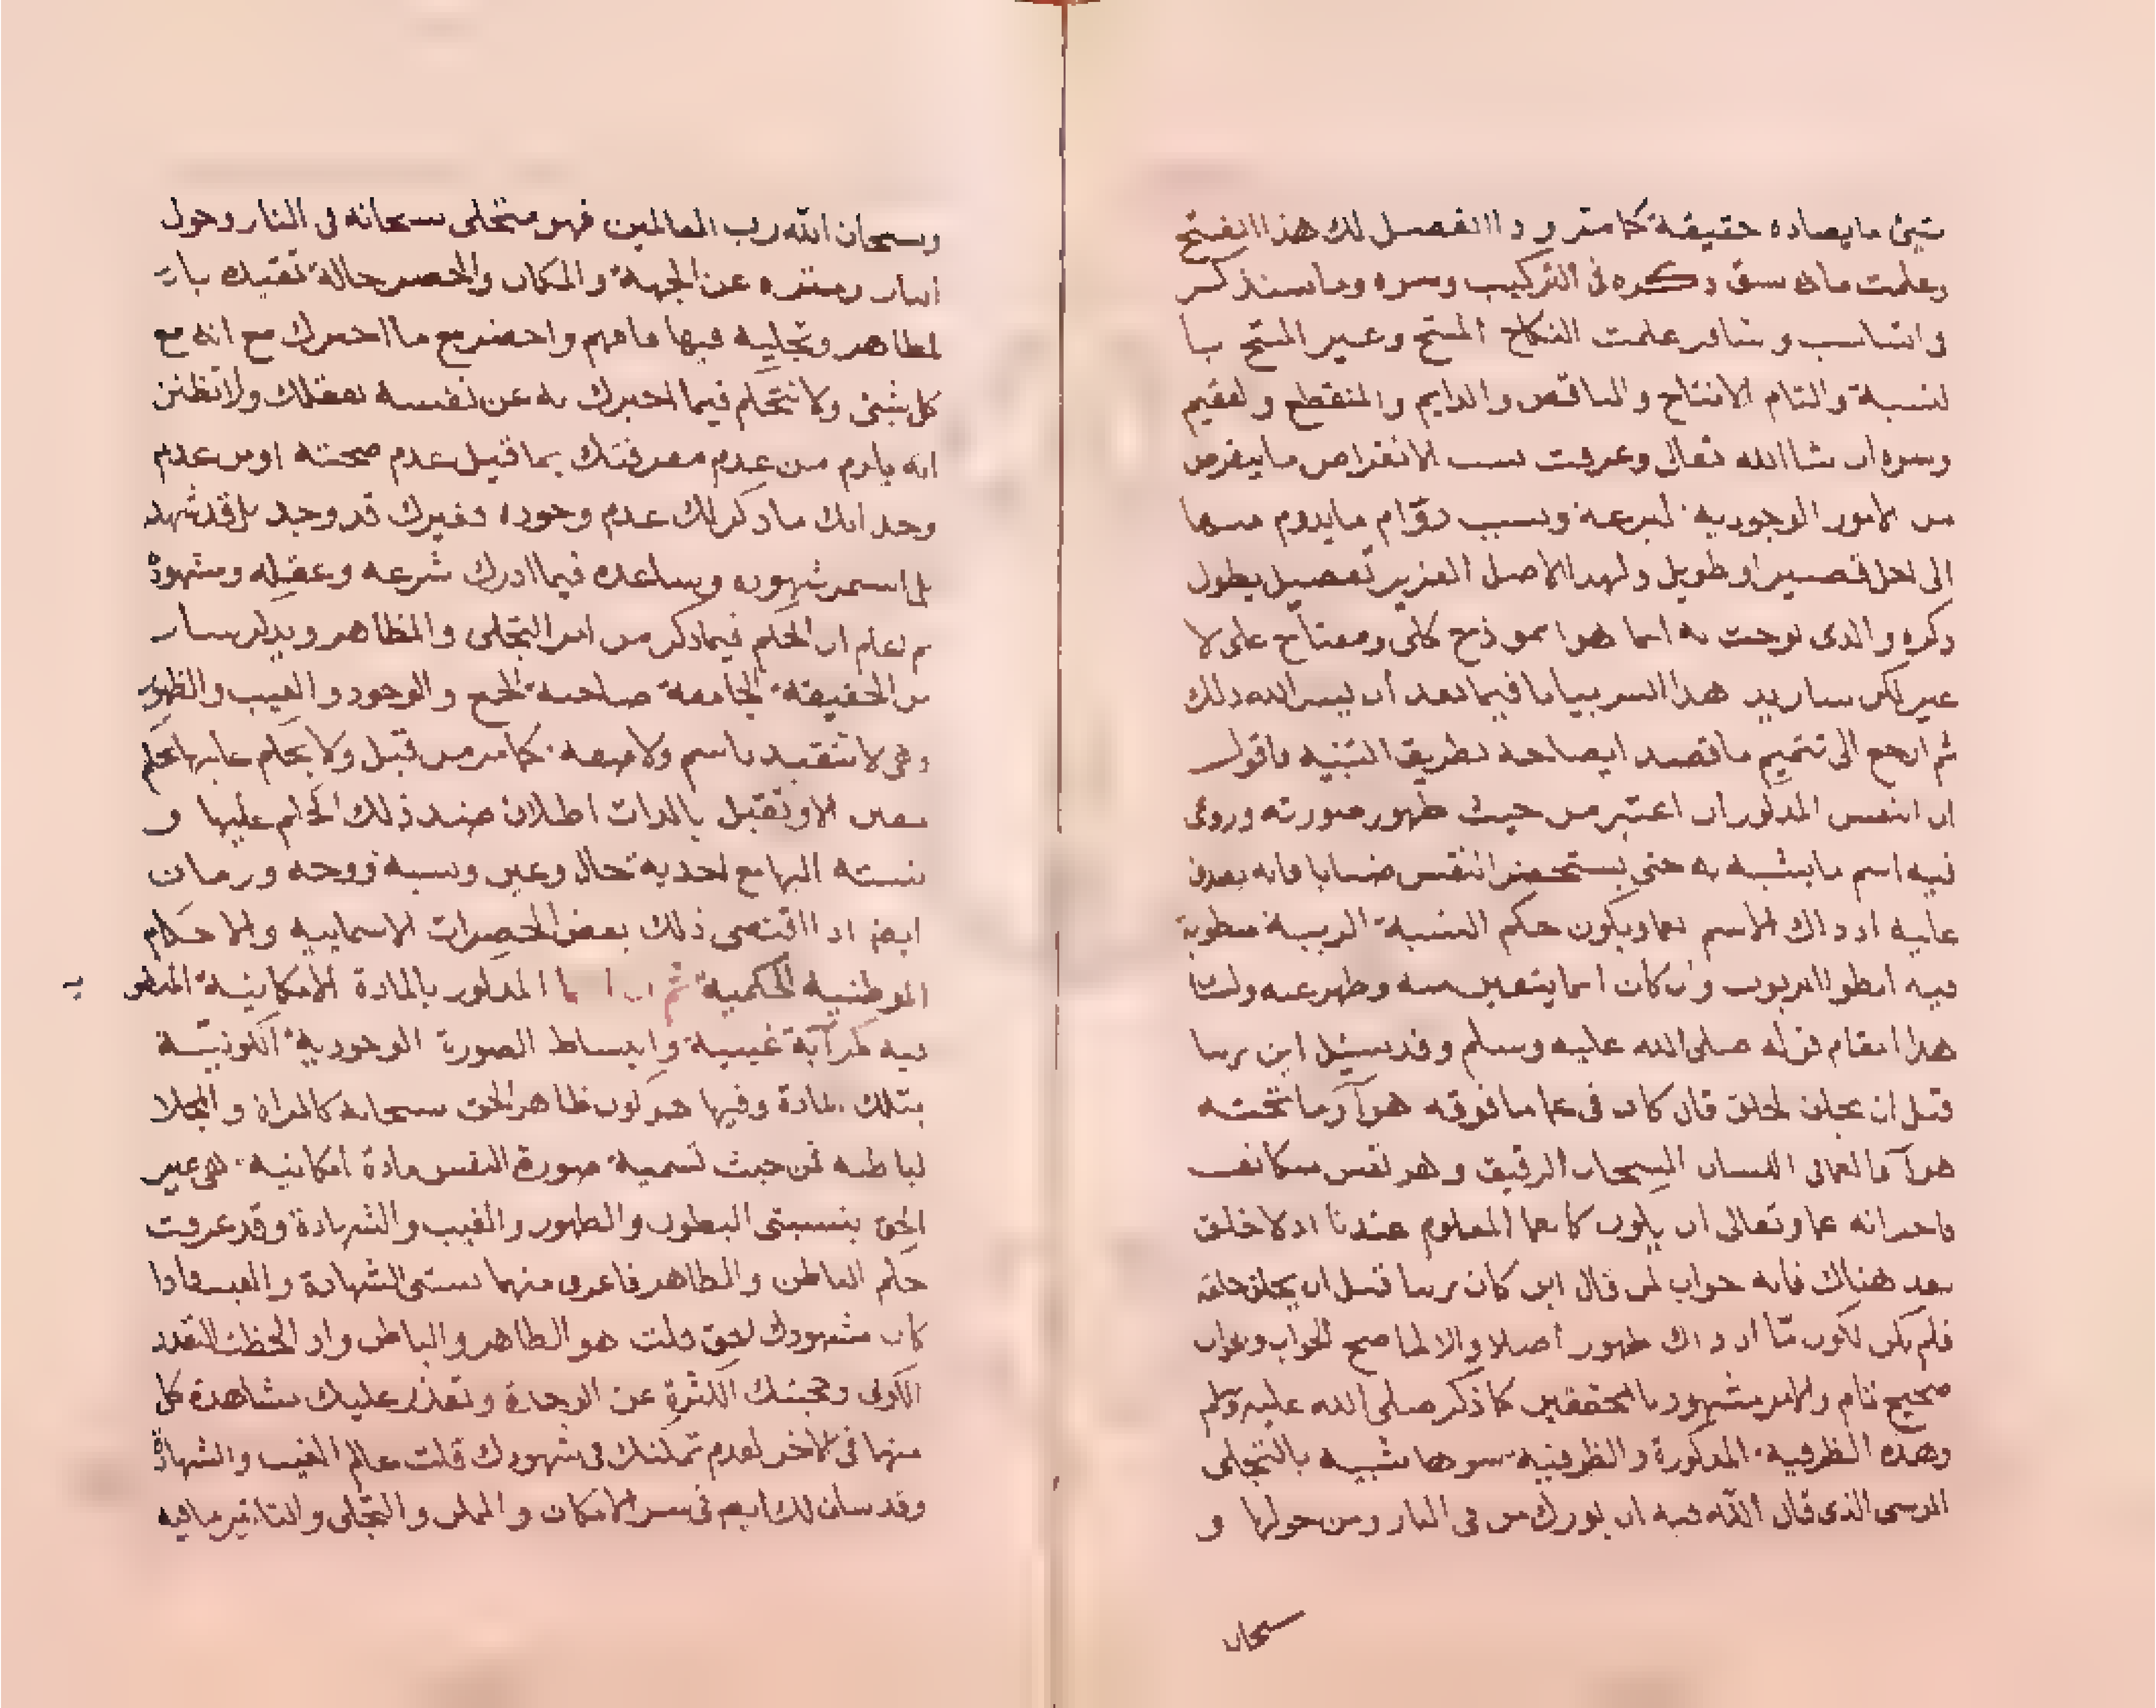 شيئ ما يضاده حقيقة كما مر و اذا انفصل لك هذا انفتح
وعلمت ما قد سبق ذكره في التركيب وسره وما سنذكر
في التناسب و التنافر علمت النكاح المنتج وغير المنتج با
لنسبة والتام الانتاج والناقص والدايم والمنقطع والعقيم
وسره ان شا الله تعالى وعرفت سبب الانقراض ما ينقرض
من الامور الوجودية بسرعة وسبب دوام ما يدوم منها
الى اجل قصير او طويل ولهذا الاصل العزيز تفصيل يطول
ذكره والذي لوحت به انما هو انموذج كلي ومفتاح علي لا
غير لكن سازيد هذا السر بيانا فيما بعد ان يسر الله ذلك
ثم ارجع الى تتميم ما قصد ايضاحه بطريق التنبيه فاقول
ان النفس المذكور ان اعتبر من حيث ظهور صورته وروعى
فيه اسم ما يشبه به حتى يستحضر النفس ضبابا فانه يصدق
عليه اذ ذاك الاسم عما ويكون حكم النسبة الربية منطوية
فيه انطوا المربوب وان كان انما يتعين منه وظهر عنه ولسا
هذا المقام قوله صلى الله عليه وسلم وقد سئل اين ربنا
قبل ان يخلق الخلق قال كان في عما ما فوقه هوآ وما تحته
هوآ فالعما في اللسان السحاب الرقيق وهو نفس متكاثف
فاخبر انه عما وتعالى ان يكون كالعما المعلوم عندنا اذ لا خلق
بعد هناك فانه جواب لمن قال اين كان ربنا قبل ان يخلق خلقه
فلم يكن لكون ما اذ ذاك ظهور اصلا والا لما صح الجواب والجواب
صحيح تام والامر مشهود للمحققين كما ذكر صلى الله عليه وسلم
وهذه الظرفية المذكورة والظرفية سرها شبيه بالتجلي
الموسى الذي قال الله فيه ان بورك من في النار ومن حولها و
سبحان
وسبحان الله رب العالمين فهو متجلى سبحانه في النار وحول
النار ومنزه عن الجهة والمكان والحصر حالة تقيده با
لمظاهر وتجليه فيها فافهم واحضر مع ما اخبرك مع انه مع
كل شيئ ولا تتحكم فيما اخبرك به عن نفسه بعقلك ولا تظنن
انه يلزم من عدم معرفتك بما قيل عدم صحته او من عدم
وجدانك ما ذكر لك عدم وجوده فغيرك قد وجد بل قد شهد
بل استمر شهوده وساعده فيما ادرك شرعه وعقله وشهوده
ثم لعلم ان الحكم فيما ذكر من امر التجلى والمظاهر ويذكر سار
من الحقيقة الجامعة صاحبة الجمع والوجود والغيب والظهور
وهي لا تتقيد باسم ولا صفة كما مر من قبل ولا يحكم عليها بحكم
معين الا وتقبل بالذات اطلاق ضد ذلك الحكم عليها و
نسبته اليها مع احدية حال وعين ونسبة ووجه وزمان
ايضا اذا اقتضى ذلك بعض الحضرات الاسمايية والاحكام
الموطنية الحكمية ثم ان المذكور بالمادة الامكانية
فيه كمرآة غيبية وانبساط الصورة الوجودية الكونية
بتلك المادة وفيها هو كون ظاهر الحق سبحانه كالمراة والمجلا
لباطنه فمن حيث تسمية صورة النفس مادة امكانية هي عين
الحق بنسبتي البطون والظهور والغيب والشهادة وقد عرفت
حكم الباطن والظاهر فاعرف منهما نسبتي الشهادة والغيب فاذا
كان مشهودك الحق قلت هو الظاهر والباطن واذا لحظت التعدد
الكوني وحجبتك الكثرة عن الوحدة وتعذر عليك مشاهدة كل
منها في الاخر لعدم تمكنك في شهودك قلت عالم الغيب والشهادة
وقد سبان لك ايضا في سر الامكان و الملك و التجلى والتاثير ما فيه